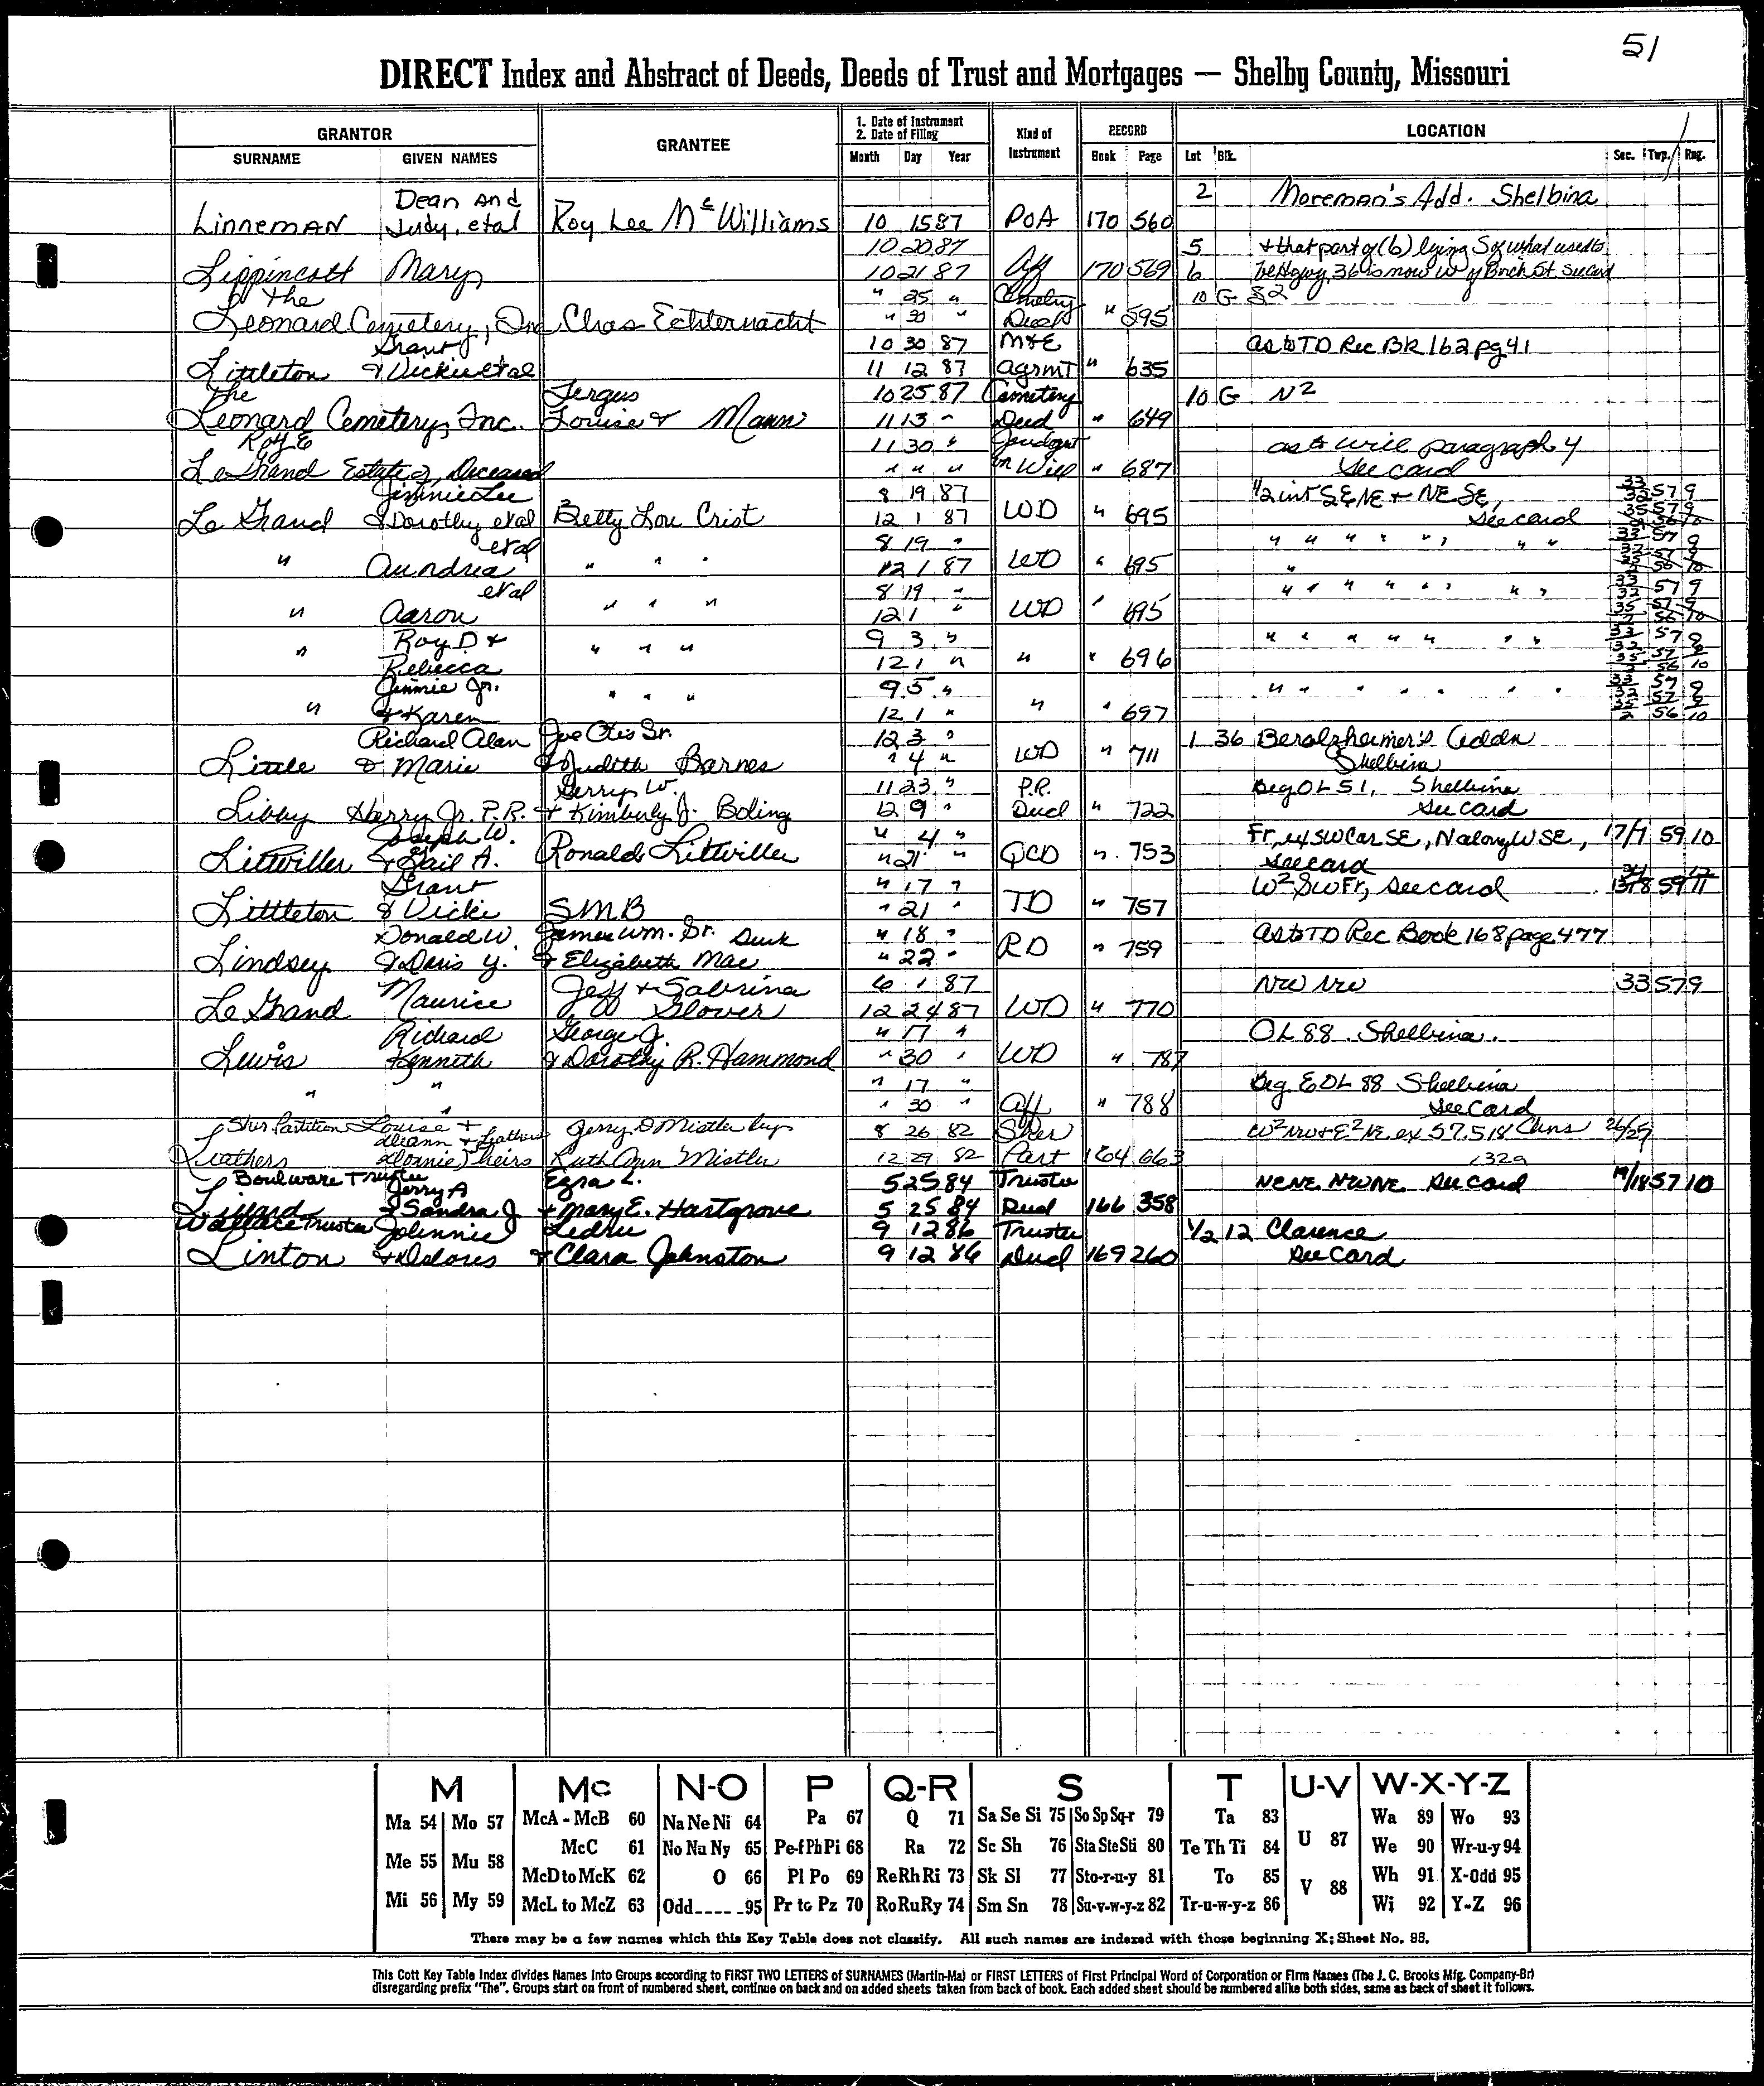 51
DIRECT Index and Abstract of Deeds, Deeds of Trust and Mortgages — Shelby County, Missouri
GRANTOR GRANTEE 1. Date of Instrument 2. Date of Filing Kind of Instrument RECORD LOCATION
SURNAME GIVEN NAMES Month Day Year Book Page Lot Blk. Sec. Twp. Rng.
Dean and 2 Moreman's Add. Shelbina
Linneman Judy, etal Roy Lee McWilliams 10 15 87 POA 170 560
10 20 87 5 + that part of (6) lying S of what used to
Lippincott Mary 10 21 87 Aff 170 569 6 be Hgwy 36 is now W of Birch St. see card
The " 25 " Cemetery 10 G S2
Leonard Cemetery, Inc Chas Echternacht " 30 " Deed " 595
Grant 10 30 87 M&E as to TD Rec Bk 162 pg 41
Littleton & Vickie etal 11 12 87 agrmt " 635
The Fergus 10 25 87 Cemetery 10 G N2
Leonard Cemetery, Inc. Louise & Mann 11 13 " Deed " 649
Roy E 11 30 " Judgmt as to will paragraph 4
LeGrand Estate of, Deceased " " " on Will " 687 see card
Jimmie Lee 8 19 87 1/2 int SE NE + NE SE, 33 32 57 9
LeGrand & Dorothy etal Betty Lou Crist 12 1 87 WD " 695 see card 35 57 9
etal 8 19 " " " " " " " " 33 57 9
" Aundrea " " " 12 1 87 WD " 695 "
etal 8 19 " " " " " " " " 33 57 9
" Aaron " " " 12 1 " WD " 695
Roy D & 9 3 " " " " " " " " 33 57 9
" Rebecca " " " 12 1 " " " 696 56 10
Jimmie Jr. 9 5 " " " " " " " " 33 57 9
" & Karen " " " 12 1 " " " 697 2 56 10
Richard Alan Joe Otis Sr. 12 3 " 1 36 Berolzheimer's Addn
Little & Marie & Judith Barnes " 4 " WD " 711 Shelbina
Gerry W. 11 23 " P.R. Beg OL 51, Shelbina
Libby Harry Jr. P.R. & Kimberly J. Boling 12 9 " Deed " 722 see card
Joseph W. " 4 " Fr, SW Cor SE, N along W SE, 17/7 59 10
Littwiller & Gail A. Ronald Littwiller " 21 " QCD " 753 see card
Grant " 17 " W2 SW Fr, see card
Littleton & Vicki SMB " 21 " TD " 757
Donald W. James Wm. Sr. " 18 " as to TD Rec Book 168 page 477
Lindsey & Doris Y. & Elizabeth Mae " 22 " RD " 759
Maurice Jeff & Sabrina 6 1 87 NW NW 33 57 9
LeGrand Glover 12 24 87 WD " 770
Richard George J. " 17 " OL 88. Shelbina.
Lewis Kenneth & Dorothy R. Hammond " 30 " WD " 787
" " " 17 " Beg E OL 88 Shelbina
" " 30 " Aff " 788 see card
Sher Partition Louise & Jerry D Mistler 8 26 82 Sher W2 NW + E2 NE ex 57.518 Chns 26/25
Leathers heirs Ruth Ann Mistler 12 29 82 Part 164 663
Boulware Trustee Jerry A Ezra L. 5 25 84 Trustee NE NE NW NE see card 19/18 57 10
Lillard & Sandra J & Mary E. Hartgrove 5 25 84 Deed 166 358
Wallace Trustee Johnnie Ledru 9 12 86 Trustee 1/2 12 Clarence
Linton & Delores & Clara Johnston 9 12 86 Deed 169 260 see card
M Mc N-O P Q-R S T U-V W-X-Y-Z
Ma 54 Mo 57 McA - McB 60 Na Ne Ni 64 Pa 67 Q 71 Sa Se Si 75 So Sp Sq-r 79 Ta 83 Wa 89 Wo 93
McC 61 No Nu Ny 65 Pe-f Ph Pi 68 Ra 72 Sc Sh 76 Sta Ste Sti 80 Te Th Ti 84 U 87 We 90 Wr-u-y 94
Me 55 Mu 58 McD to McK 62 O 66 Pl Po 69 Re Rh Ri 73 Sk Sl 77 Sto-r-u-y 81 To 85 V 88 Wh 91 X-Odd 95
Mi 56 My 59 McL to McZ 63 Odd---- -95 Pr to Pz 70 Ro Ru Ry 74 Sm Sn 78 Su-v-w-y-z 82 Tr-u-w-y-z 86 Wi 92 Y-Z 96
There may be a few names which this Key Table does not classify. All such names are indexed with those beginning X; Sheet No. 95.
This Cott Key Table Index divides Names Into Groups according to FIRST TWO LETTERS of SURNAMES (Martin-Ma) or FIRST LETTERS of First Principal Word of Corporation or Firm Names (The J. C. Brooks Mfg. Company-Br)
disregarding prefix "The". Groups start on front of numbered sheet, continue on back and on added sheets taken from back of book. Each added sheet should be numbered alike both sides, same as back of sheet it follows.